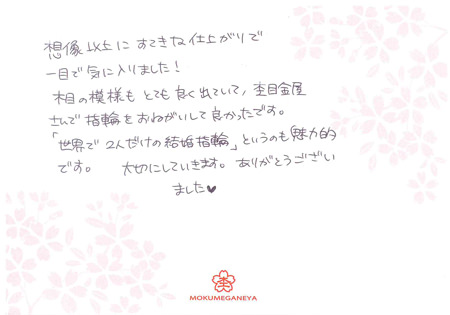 想像以上に すてきな仕上がりで
一目で気に入りました！
木目の模様も とても良く出ていて、杢目金屋
さんで指輪をおねがいして良かったです。
「世界で 2人だけの結婚指輪」というのも魅力的
です。 大切にしていきます。ありがとうござい
ました♥
MOKUMEGANEYA